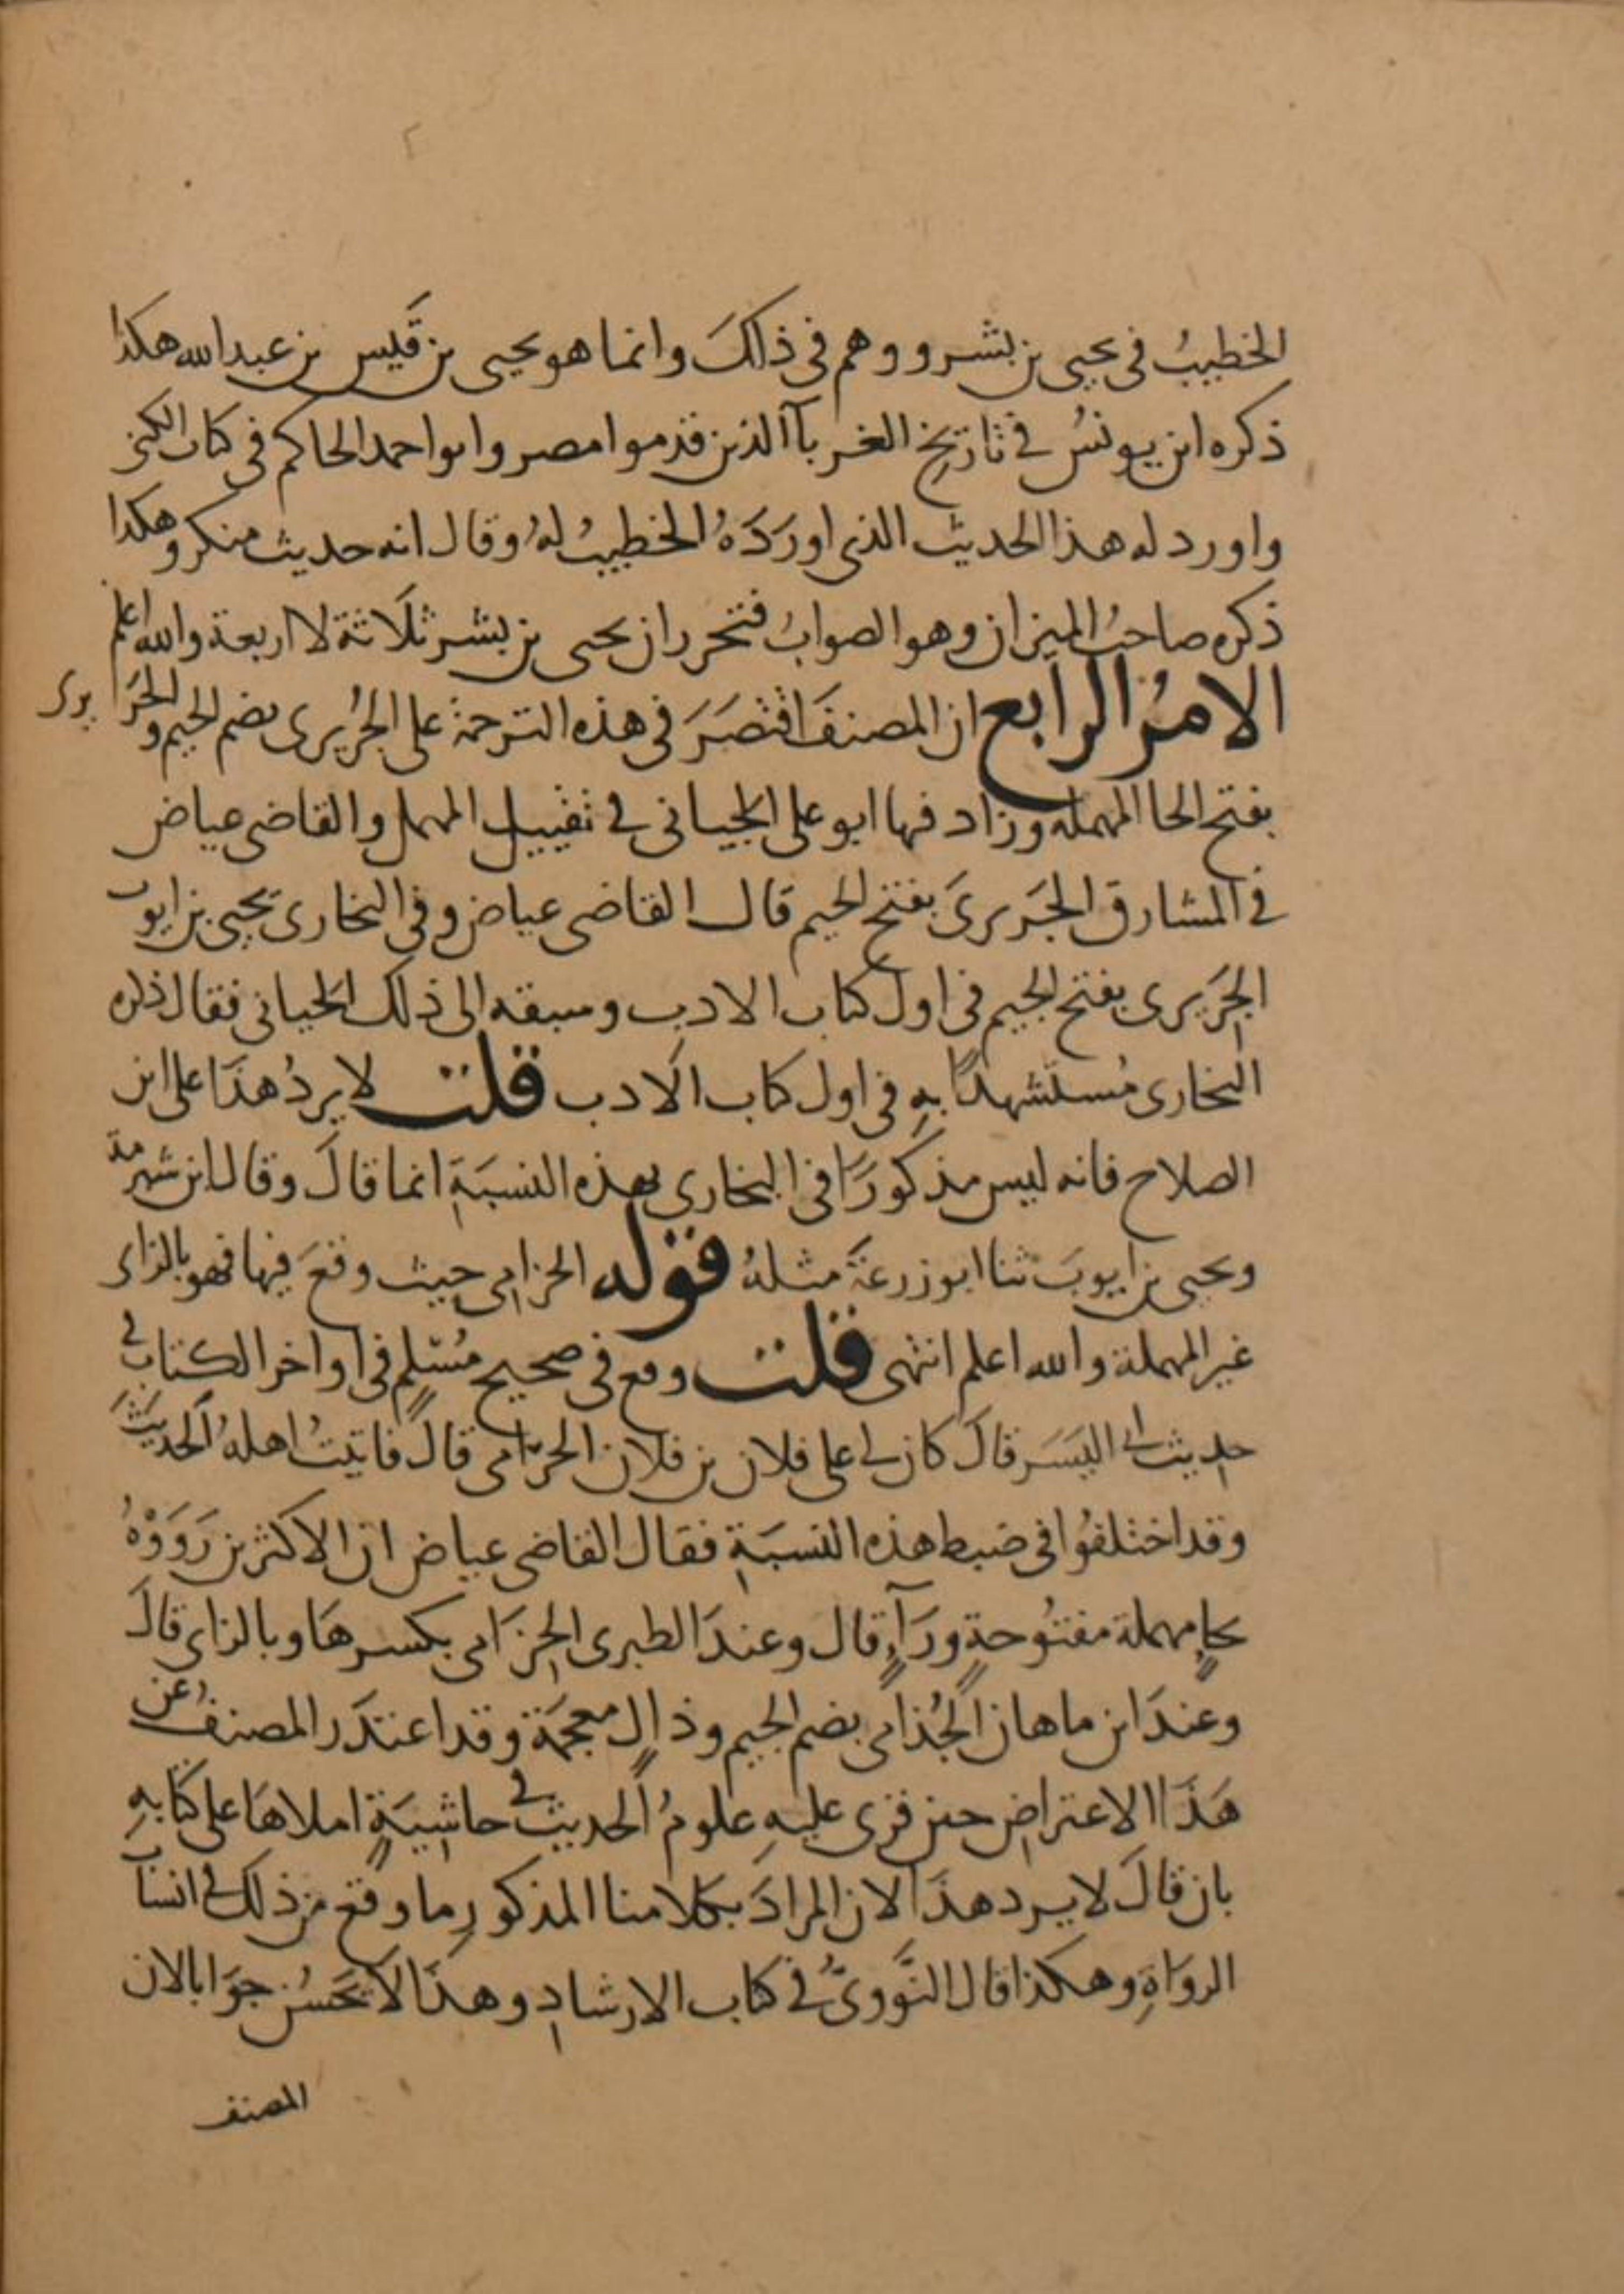 الخطيبُ فى يحيى بن بشر ووهم فى ذلكَ وانما هو يحيى بن قَيس بن عبد الله هكذا
ذكره ابن يونسُ فى تاريخ الغربآ الذين قدموا مصر وابو احمد الحاكم فى كتاب الكنى
واورد له هذا الحديث الذى اورَدَهُ الخطيبُ لهُ وقال انه حديث منكر وهكذا
ذكره صاحبُ الميزان وهو الصوابُ فتحرر ان يحيى بن بشر ثلَاثة لا اربعة والله اعلم
الامرُ الرابع ان المصنفَ اقتصَرَ فى هذه الترجمة على الجُرَيرى بضم الجيم والحَريرى
بفتح الحا المهملة وزاد فيها ابو على الجيانى فى تقييد المهمل والقاضى عياض
فى المشارق الجَريرىَ بفتح الجيم قال القاضى عياض وفى البخارى يحيى بن ايوب
الجَريرى بفتح الجيم فى اول كتاب الادب وسبقه الى ذلك الجيانى فقال ذكره
البخارى مُستشهدًا بهِ فى اول كتاب الَادب قلت لا يردُ هذَا على ابن
الصلاح فانه ليس مذكورًا فى البخارى بهذه النسبَةِ انما قالَ وقال ابن شبرمة
ويحيى بن ايوبَ ثنا ابو زرعَةَ مثلهُ قوله الحزامى حيث وقعَ فيها فهو بالزاى
غير المهملة والله اعلم انتهى قلت وقع فى صحيح مُسْلمٍ فى اواخر الكتاب فى
حديث ابى اليَسَر قالَ كان لى على فلان بن فلان الحرامى قالَ فاتيتُ اهلهُ الَحديثَ
وقد اختلفُوا فى ضبط هذه النسبَةِ فقال القاضى عياض ان الاكثرين رَوَوْهُ
بحاٍ مهملة مفتُوحةٍ ورَآءٍ قال وعندَ الطبرى الحِزَامى بكسرهَا وبالزاى قالَ
وعندَ ابن ماهان الجُذامى بضم الجيم وذالٍ معجمَة وقد اعتذَر المصنفُ عن
هَذَا الاعتراض حين قرى عليهِ علومُ الَحديث فى حاشيَةٍ املاهَا على كتَابهِ
بان قالَ لا يرد هذَا لان المرادَ بكلامنا المذكورِ ما وقعَ من ذلك فى انسَاب
الروَاةِ وهكذا قال النَّووىُّ فى كتاب الارشادِ وهذَا لَا يَحسُن جوَابا لان
المصنف